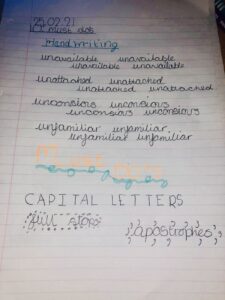 25.02.21
Handwriting
unavailable unavailable
unavailable unavailable
unattached unattached
unattached unattached
unconsious unconsious
unconsious unconsious
unfamiliar unfamiliar
unfamiliar unfamiliar
CAPITAL LETTERS
full stops
apostrophes